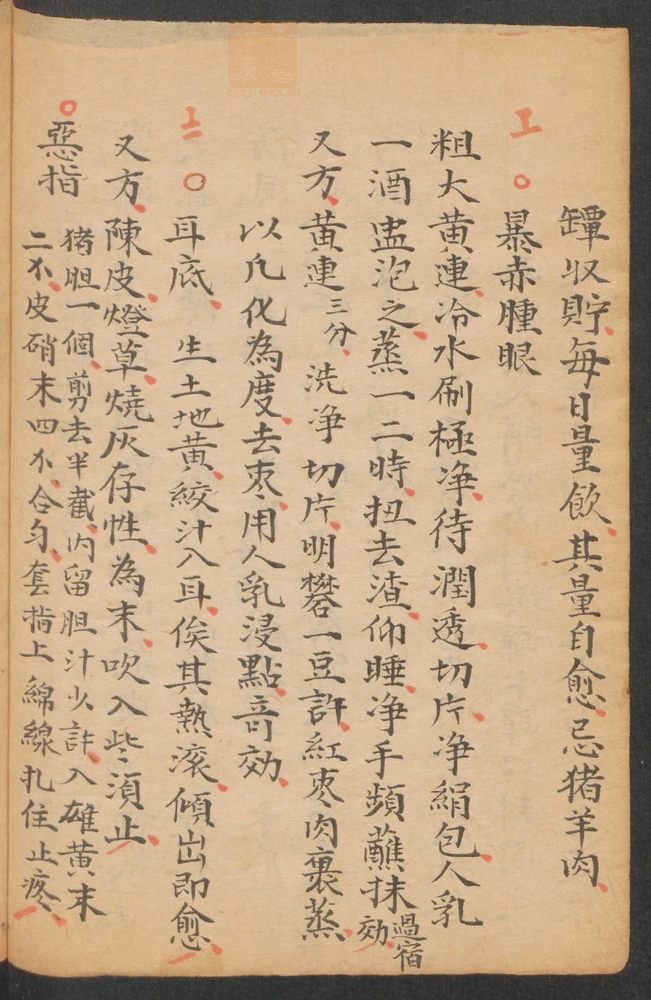 罈收貯每日量飲其量自愈忌猪羊肉
暴赤腫眼
粗大黄連冷水刷極净待潤透切片净絹包人乳
一酒盅泡之蒸一二時扭去渣仰睡净手頻蘸抹過宿効
又方黄連三分洗净切片明礬一豆許紅枣肉裹蒸
以凢化為度去枣用人乳浸點竒効
耳底 生土地黄絞汁入耳俟其熱滚傾出即愈
又方陳皮燈草燒灰存性為末吹入些須止
惡指 猪胆一個剪去半截内留胆汁少許入雄黄末
二不皮硝末四不合匀套指上綿線扎住止疼